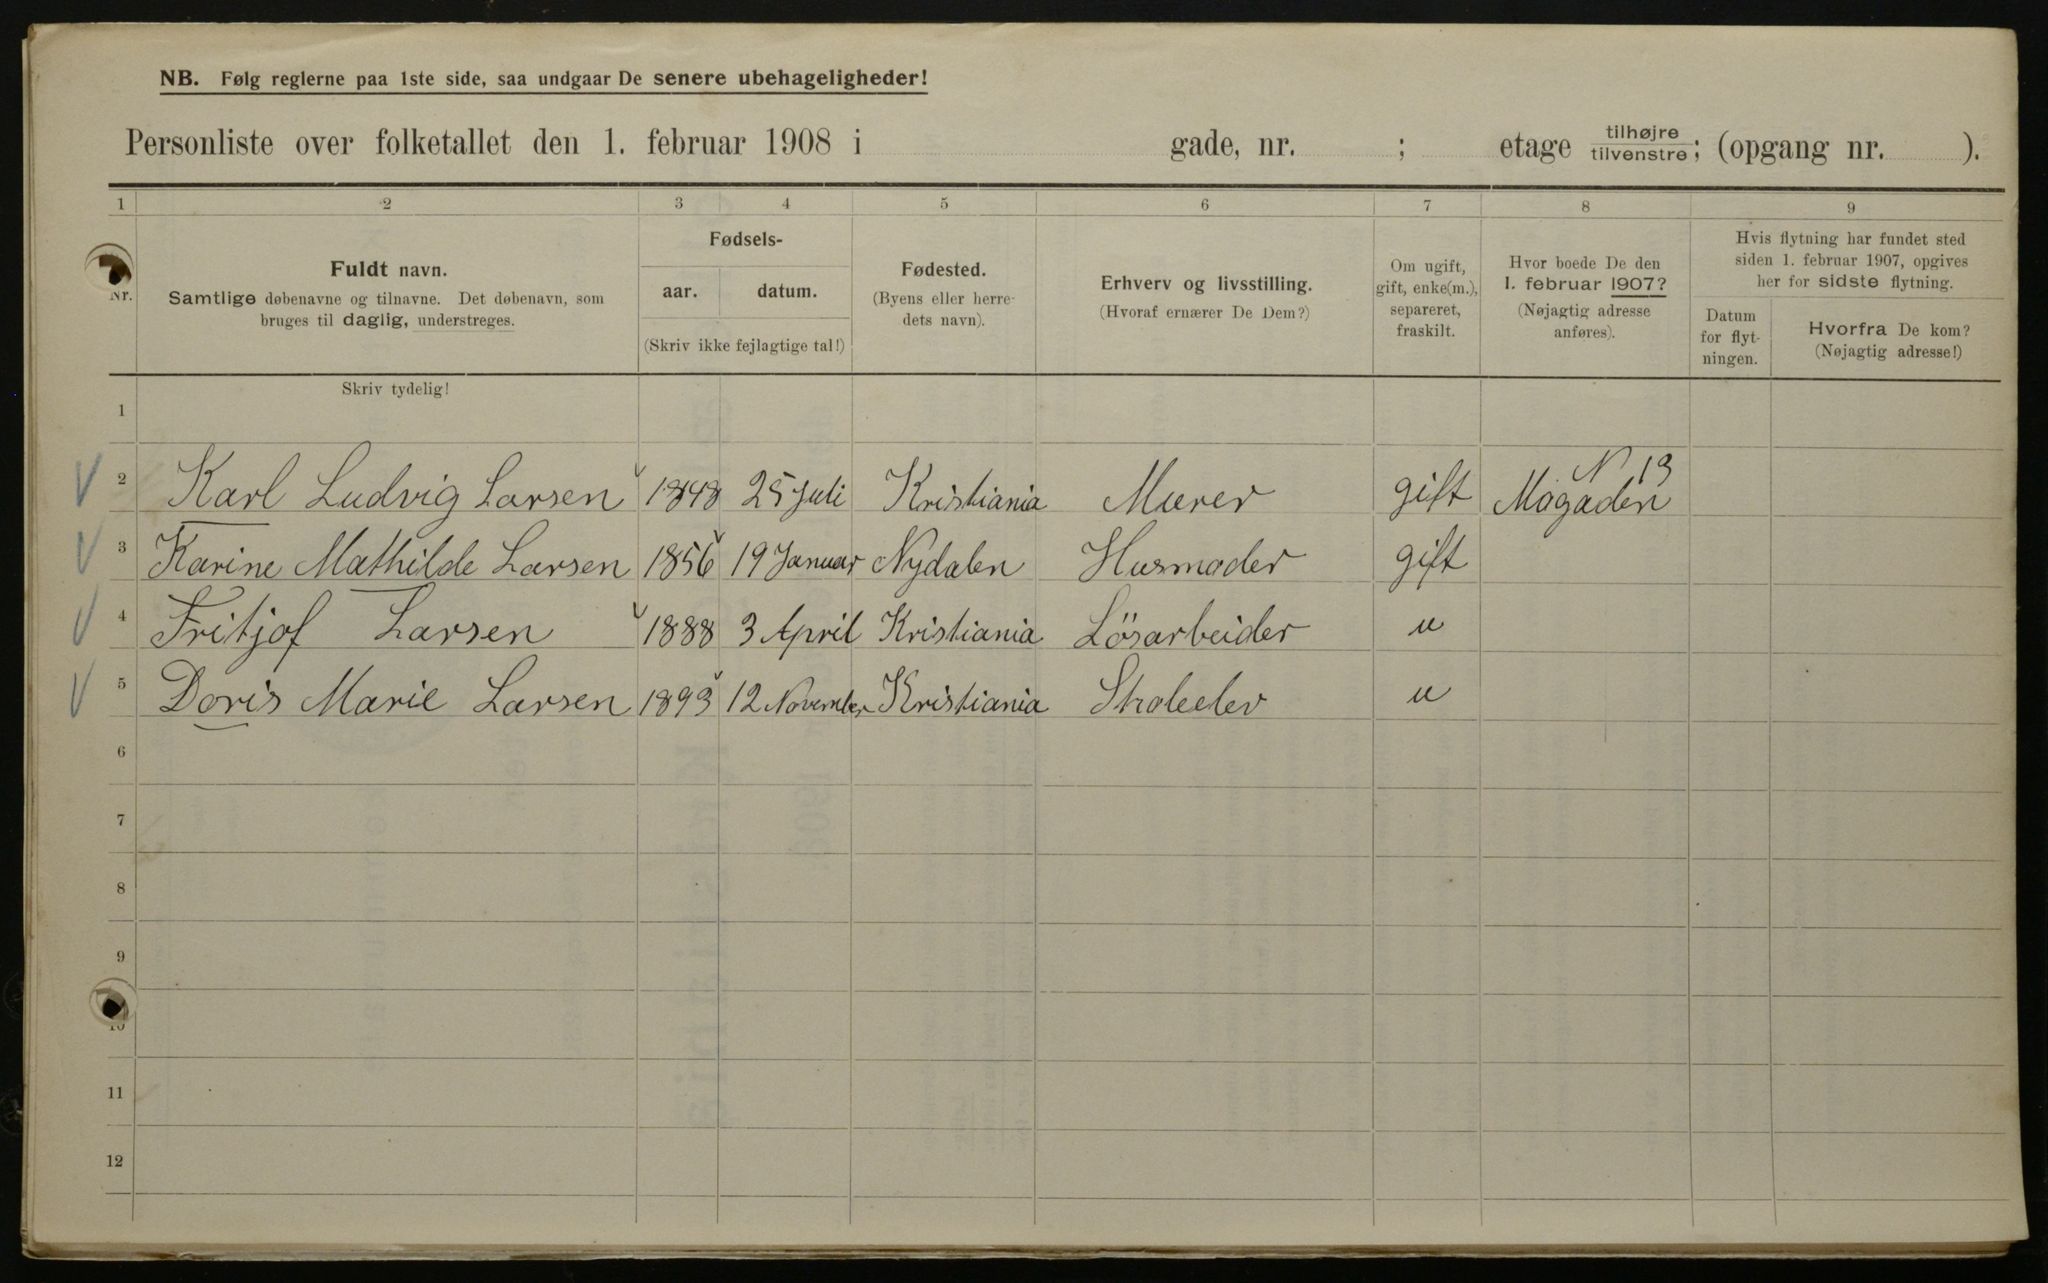 NB. Følg reglerne paa 1ste side, saa undgaar De senere ubehageligheder!
Personliste over folketallet den 1. februar 1908 i gade, nr. ; etage tilhøjre tilvenstre; (opgang nr. ).
1 2 3 4 5 6 7 8 9
Nr.
Fuldt navn.
Samtlige døbenavne og tilnavne. Det døbenavn, som
bruges til daglig, understreges.
Skriv tydelig!
Fødsels-
aar. datum.
(Skriv ikke fejlagtige tal!)
Fødested.
(Byens eller herre-
dets navn).
Erhverv og livsstilling.
(Hvoraf ernærer De Dem?)
Om ugift,
gift, enke(m.),
separeret,
fraskilt.
Hvor boede De den
1. februar 1907?
(Nøjagtig adresse
anføres).
Hvis flytning har fundet sted
siden 1. februar 1907, opgives
her for sidste flytning.
Datum
for flyt-
ningen.
Hvorfra De kom?
(Nøjagtig adresse!)
1
N 13
2 Karl Ludvig Larsen 1848 25 Juli Kristiania Murer gift Magaden
3 Karine Mathilde Larsen 1856 19 Januar Nydalen Husmoder gift
4 Fritjof Larsen 1888 3 April Kristiania Lösarbeider u
5 Doris Marie Larsen 1893 12 November Kristiania Skoleelev u
6
7
8
9
10
11
12